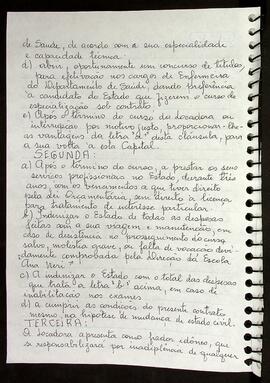 de Saúde, de acordo com a sua especialidade
e capacidade técnica.
d) abrir, oportunamente um concurso de títulos,
para efetivação nos cargos de Enfermeira
do Departamento de Saúde, dando preferência
a candidata do Estado que fizerem o curso de
especialização sob contrato
e) Após o término do curso da Locadora ou
interrupção por motivo justo, proporcionar-lhe
as vantagens da letra "d" desta cláusula, para
a sua volta a esta Capital.
SEGUNDA:
a) Após o término do curso, a prestar os seus
serviços profissionais no Estado, durante três
anos, com os vencimentos a que tiver direito
pela Lei Orçamentária, sem direito a licença
para tratamento de interêsse particular.
b) Indenizar o Estado de todas as despesas
feitas com a sua viagem e manutenção, em
caso de desistência no prosseguimento do curso,
salvo, moléstia grave, ou falta de vocação devi-
damente comprovada pela Direção da Escola
Ana Neri.
c) A indenizar o Estado com o total das despesas
que trata a letra "b" acima, em caso de
inabilitação nos exames
d) a cumprir as condições do presente contrato
mesmo, na hipótese de mudança de estado civil.
TERCEIRA:
A Locadora apresenta como fiador idôneo, que
se responsabilizará por inadiplência de qualquer